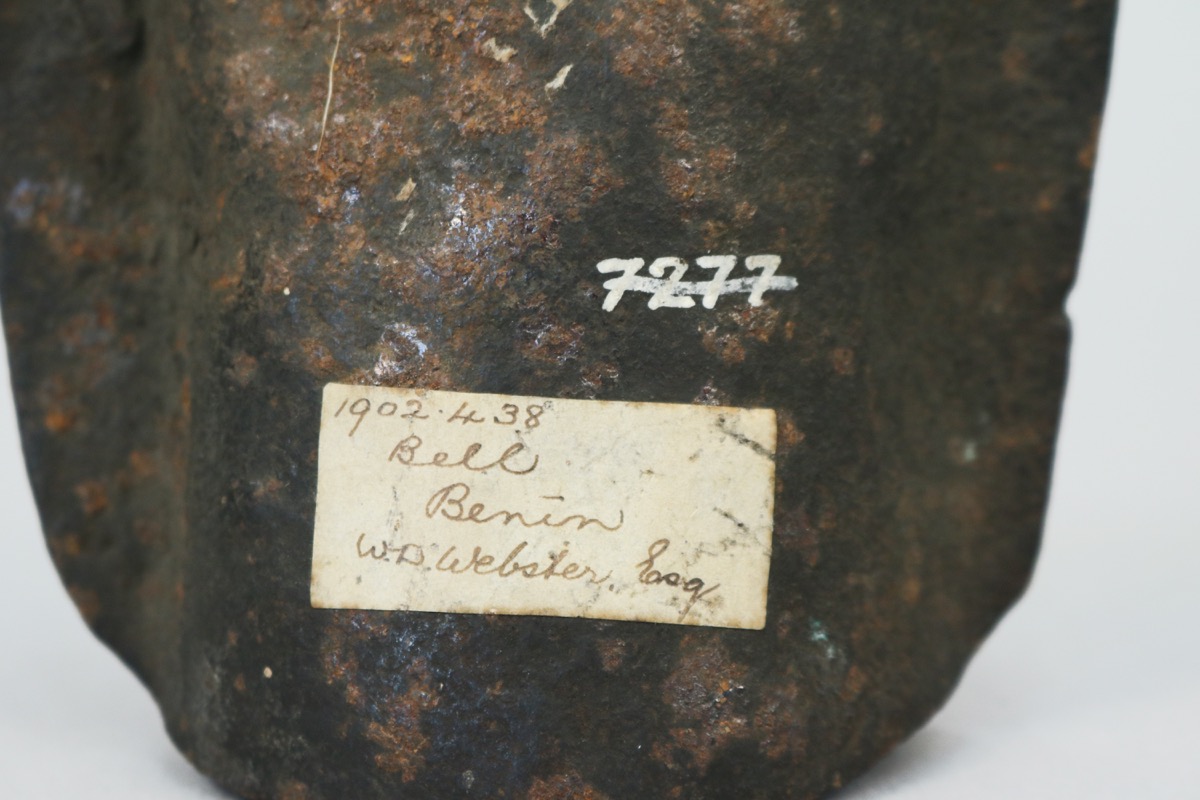 7277
1902.438
Bell
Benin
W.D. Webster, Esq